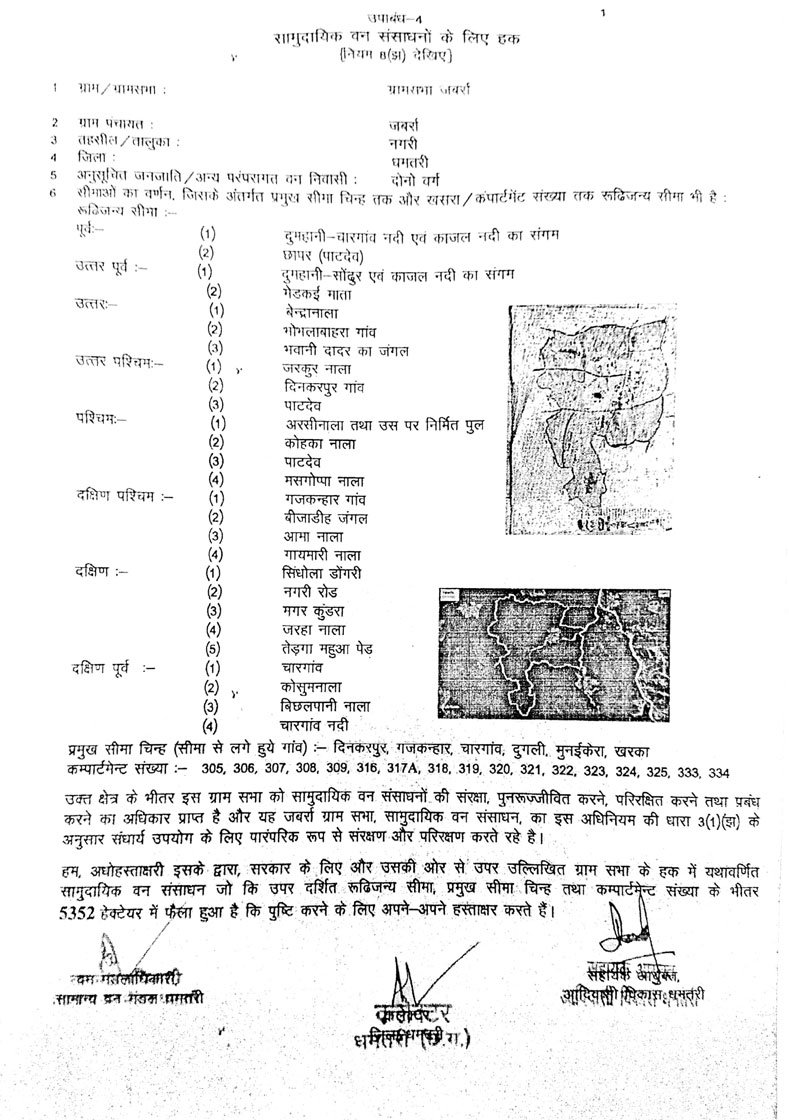 1
उपाबंध–4
सामुदायिक वन संसाधनों के लिए हक
{नियम 8(झ) देखिए}
1 ग्राम/ग्रामसभा : ग्रामसभा जबर्रा
2 ग्राम पंचायत : जबर्रा
3 तहसील/तालुका : नगरी
4 जिला : धमतरी
5 अनुसूचित जनजाति/अन्य परंपरागत वन निवासी : दोनो वर्ग
6 सीमाओं का वर्णन, जिसके अंतर्गत प्रमुख सीमा चिन्ह तक और खसरा/कंपार्टमेंट संख्या तक रूढिजन्य सीमा भी है :
रूढिजन्य सीमा :–
पूर्वः– (1) दुमहानी–चारगांव नदी एवं काजल नदी का संगम
(2) छापर (पाटदेव)
उत्तर पूर्व :– (1) दुमहानी–सोंढुर एवं काजल नदी का संगम
(2) गेडकई माता
उत्तरः– (1) बेन्द्रानाला
(2) भोभलाबाहरा गांव
(3) भवानी दादर का जंगल
उत्तर पश्चिमः– (1) जरकुर नाला
(2) दिनकरपुर गांव
(3) पाटदेव
पश्चिमः– (1) अरसीनाला तथा उस पर निर्मित पुल
(2) कोहका नाला
(3) पाटदेव
(4) मसगोप्पा नाला
दक्षिण पश्चिम :– (1) गजकन्हार गांव
(2) बीजाडीह जंगल
(3) आमा नाला
(4) गायमारी नाला
दक्षिण :– (1) सिंधोला डोंगरी
(2) नगरी रोड
(3) मगर कुंडरा
(4) जरहा नाला
(5) तेड़गा महुआ पेड़
दक्षिण पूर्व :– (1) चारगांव
(2) कोसुमनाला
(3) बिछलपानी नाला
(4) चारगांव नदी
प्रमुख सीमा चिन्ह (सीमा से लगे हुये गांव) :– दिनकरपुर, गजकन्हार, चारगांव, दुगली, मुनईकेरा, खरका
कम्पार्टमेन्ट संख्या :– 305, 306, 307, 308, 309, 316, 317A, 318, 319, 320, 321, 322, 323, 324, 325, 333, 334
उक्त क्षेत्र के भीतर इस ग्राम सभा को सामुदायिक वन संसाधनों की संरक्षा, पुनरूज्जीवित करने, परिरक्षित करने तथा प्रबंध
करने का अधिकार प्राप्त है और यह जबर्रा ग्राम सभा, सामुदायिक वन संसाधन, का इस अधिनियम की धारा 3(1)(झ) के
अनुसार संधार्य उपयोग के लिए पारंपरिक रूप से संरक्षण और परिरक्षण करते रहे है।
हम, अधोहस्ताक्षरी इसके द्वारा, सरकार के लिए और उसकी ओर से उपर उल्लिखित ग्राम सभा के हक में यथावर्णित
सामुदायिक वन संसाधन जो कि उपर दर्शित रूढिजन्य सीमा, प्रमुख सीमा चिन्ह तथा कम्पार्टमेन्ट संख्या के भीतर
5352 हेक्टेयर में फैला हुआ है कि पुष्टि करने के लिए अपने–अपने हस्ताक्षर करते हैं।
वन मंडलाधिकारी,
सामान्य वन मंडल धमतरी
कलेक्टर
धमतरी (छ.ग.)
सहायक आयुक्त,
आदिवासी विकास धमतरी